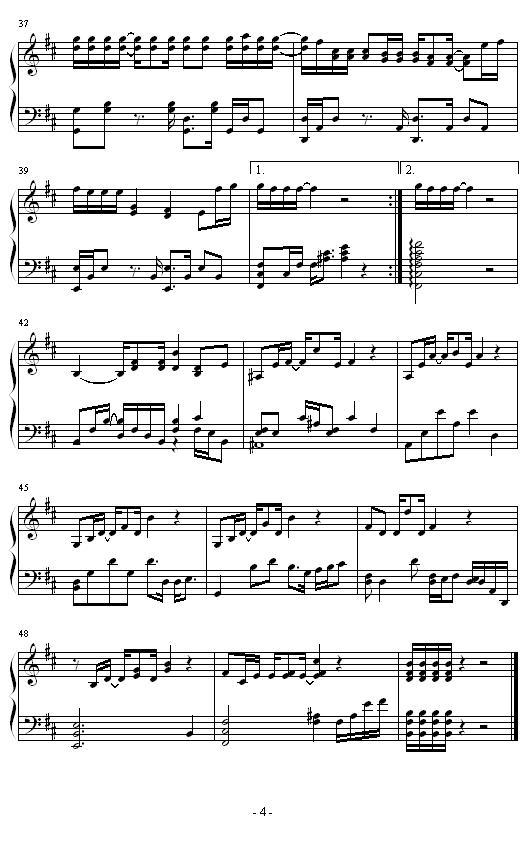 37
39
1.
2.
42
45
48
- 4 -